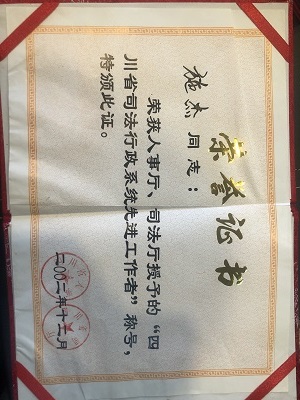 荣誉证书
施杰同志：
荣获人事厅、司法厅授予的“四
川省司法行政系统先进工作者”称号，
特颁此证。
二〇〇二年十二月